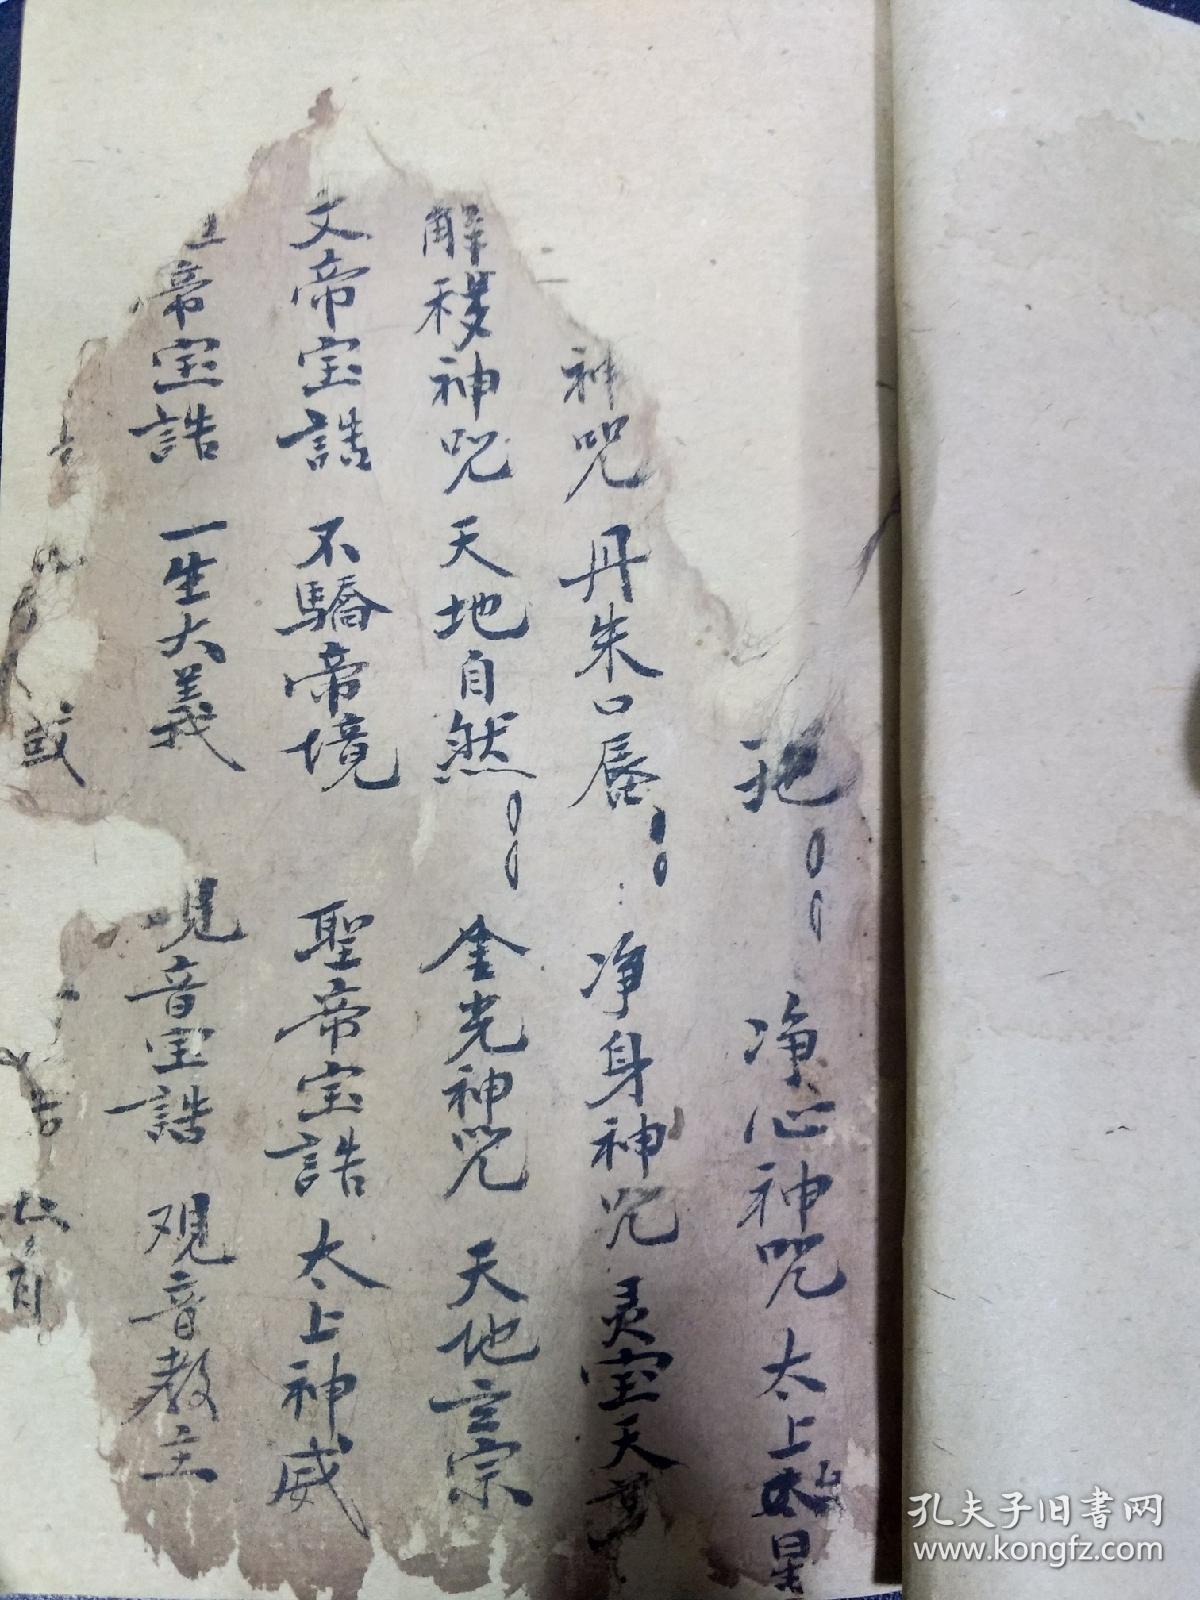 地 净心神咒 太上台星
神咒 丹朱口唇 净身神咒 灵宝天尊
解秽神咒 天地自然 金光神咒 天地玄宗
文帝宝誥 不驕帝境 聖帝宝誥 太上神威
帝宝誥 一生大義 观音宝誥 观音教主
或
孔夫子旧书网
www.kongfz.com